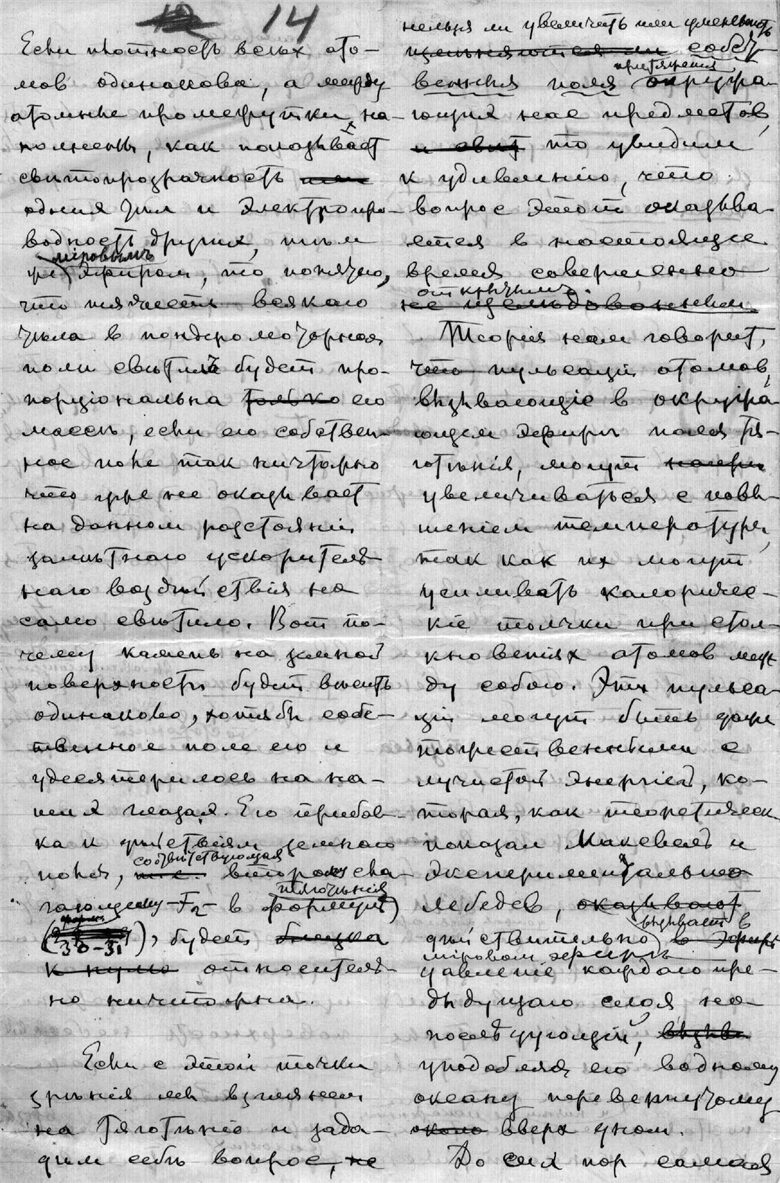 12 14
Если плотность всех ато-
мов одинакова, а между
атомные промежутки на-
полнены, как показывает
свѣтопрозрачность
одних тѣл и электропро-
водность других, тѣм
міровым
же эфиром, то понятно,
что тяжесть всякаго
тѣла в пондеромоторном
поли свѣтилъ будет про-
порціональна только его
массѣ, если его собствен-
ное поле так ничтожно
что уже не оказывает
на данном разстояніи
замѣтнаго ускоритель-
наго воздѣйствія на
само свѣтило. Вот по-
чему камень на земной
поверхности будет висѣть
одинаково, хотя бы собс-
твенное поле его и
удесятерилось на на-
ших глазах. Его прибав-
ка к дѣйствіям земнаго
соотвѣтствующая
поля, второму сла-
гаемому F₂ в формулѣ
тяготѣнія
(30-31), будет близка
к нулю относитель-
но ничтожна.
Если с этой точки
зрѣнія мы взглянем
на тяготѣніе и зада-
дим себѣ вопрос, не
нельзя ли увеличить или уменьшить
собст
притяженія
венныя поля окружа-
ющих нас предметов,
то увидим
к удивленію, что
вопрос этот оказыва-
ется в настоящее
время совершенно
открытым.
не изслѣдованным.
Теорія нам говорит,
что пульсаціи атомов,
вызывающіе в окружа-
ющем эфирѣ поля тя-
готѣнія, могут
увеличиваться с повы-
шеніем температуры,
так как их могут
усиливать калоричес-
кіе толчки при стол-
кновеніях атомов меж-
ду собою. Эти пульса-
ціи могут быть даже
тождественными с
лучистой энергіей, ко-
торая, как теоретически
показал Максвелъ и
экспериментально
Лебедев, оказывает
вызывает в
дѣйствительно в эфирѣ
міровом эфирѣ
давленіе каждаго пре-
дыдущаго слоя на
послѣдующій,
уподобляя его водному
океану перевернутому
вверх дном.
До сих пор самая